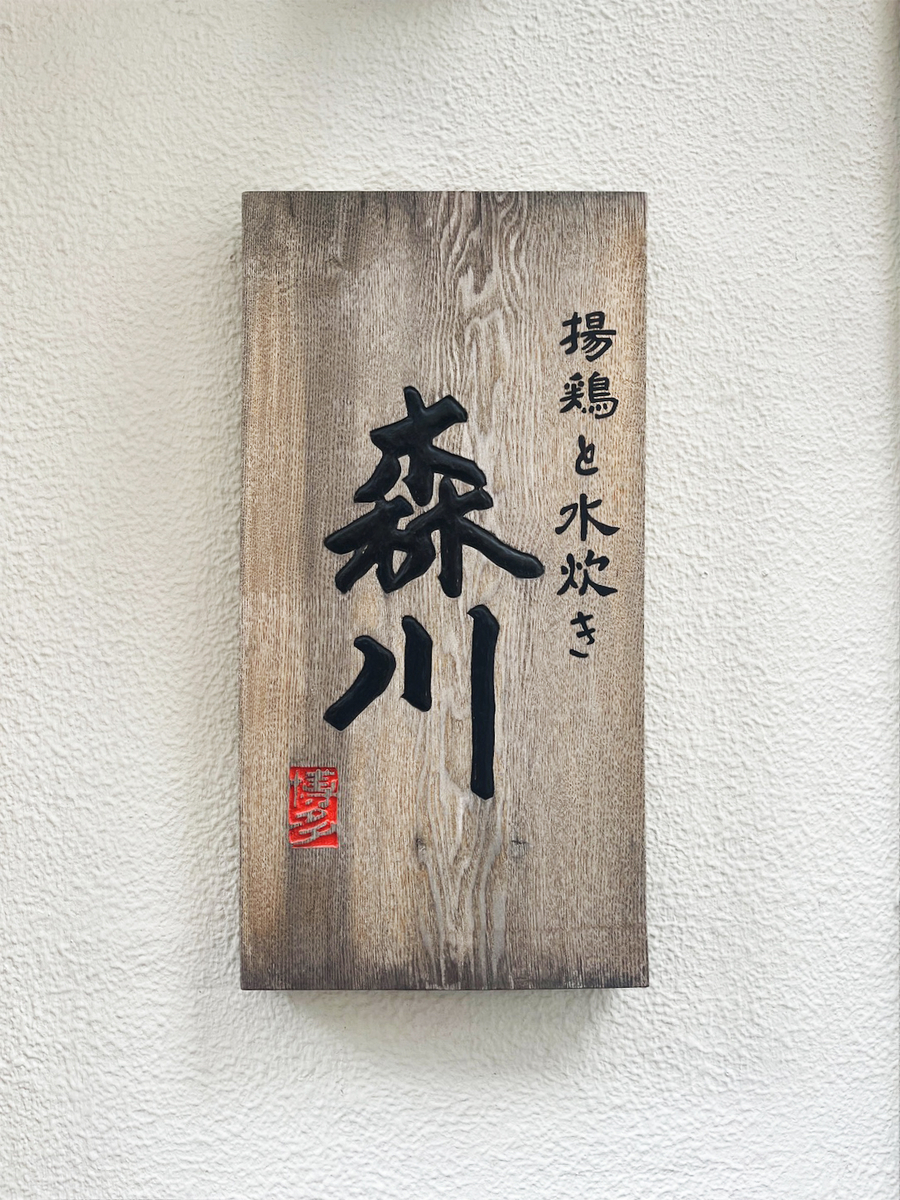 揚鶏と水炊き
森川
博多